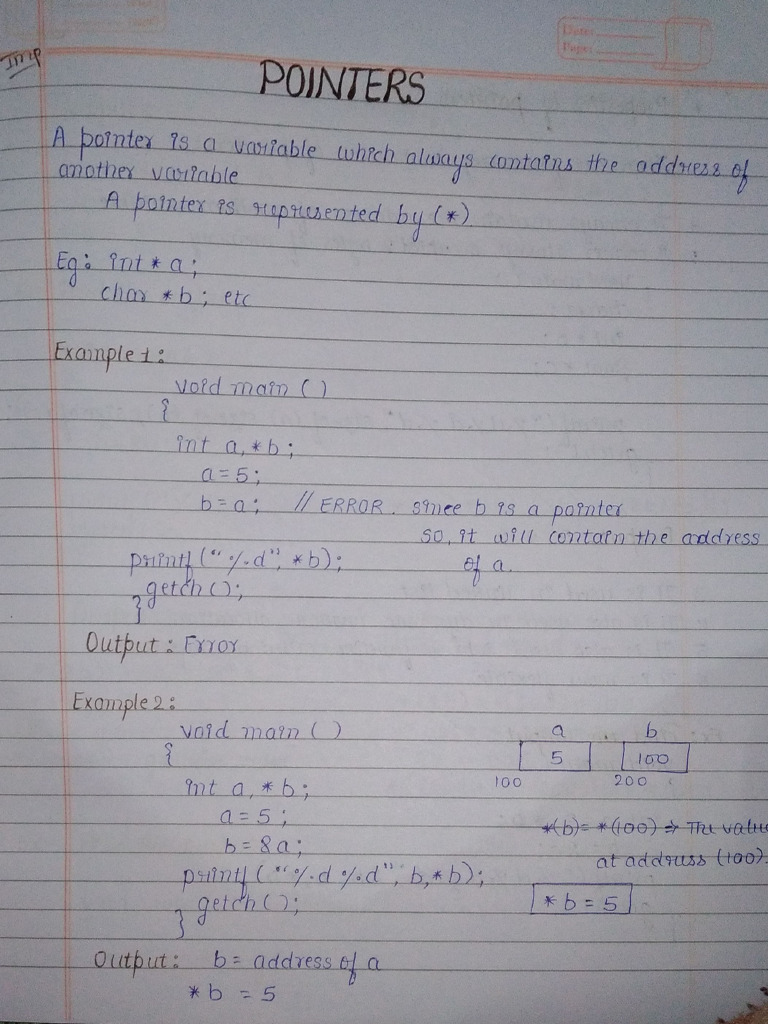 Imp
Date:
Page:
POINTERS
A pointer is a variable which always contains the address of
another variable
A pointer is represented by (*)
Eg: int * a;
char *b; etc
Example 1:
void main ()
{
int a, *b;
a=5;
b=a; // ERROR. since b is a pointer
so, it will contain the address
printf ("%d", *b); of a.
getch ();
}
Output: Error
Example 2:
void main () a b
{ 5 100
100 200
int a, *b;
a=5;
*(b)= *(100) ⇒ The value
b=&a; at address (100).
printf ("%d %d", b,*b);
getch (); *b = 5
}
Output: b= address of a
*b = 5